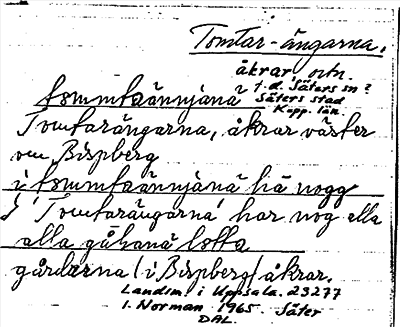 Tomtar-ängarna,
åkrar och.
f. d. Säters sn?
Säters stad
Kopp. län.
tommtaännjana
Tomtarängarna, åkrar väster
om Bispberg
i tommtaännjana ha nogg
I Tomtarängarna har nog alla
alla gåḷana lotta
gårdarna (i Bispberg) åkrar.
Landsm. i Uppsala. 23277
I. Norman 1965. Säter
DAL.